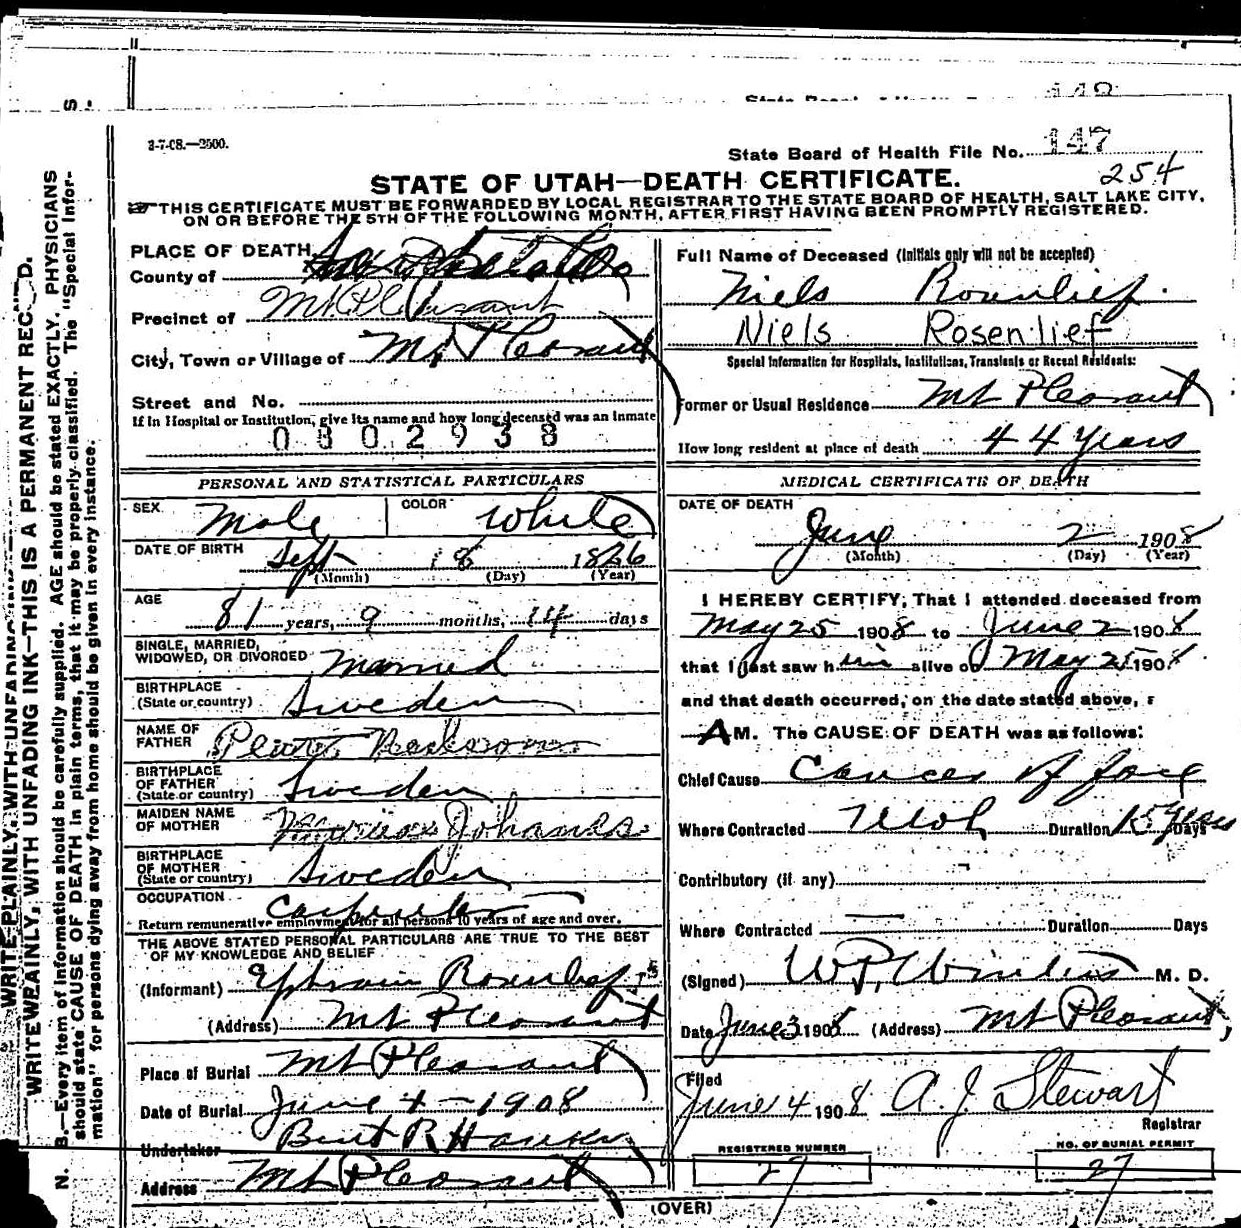 S.
148
State Board of Health
3-7-08.—2500.
State Board of Health File No. 147
STATE OF UTAH—DEATH CERTIFICATE.
254
THIS CERTIFICATE MUST BE FORWARDED BY LOCAL REGISTRAR TO THE STATE BOARD OF HEALTH, SALT LAKE CITY,
ON OR BEFORE THE 5TH OF THE FOLLOWING MONTH, AFTER FIRST HAVING BEEN PROMPTLY REGISTERED.
PLACE OF DEATH
County of
Precinct of Mt Pleasant
City, Town or Village of Mt Pleasant
Street and No.
If in Hospital or Institution, give its name and how long deceased was an inmate
0802938
PERSONAL AND STATISTICAL PARTICULARS
SEX Male COLOR White
DATE OF BIRTH
Sept 18 1826
(Month) (Day) (Year)
AGE
81 years, 9 months, 14 days
SINGLE, MARRIED,
WIDOWED, OR DIVORCED Married
BIRTHPLACE
(State or country) Sweden
NAME OF
FATHER
BIRTHPLACE
OF FATHER
(State or country) Sweden
MAIDEN NAME
OF MOTHER Johanes
BIRTHPLACE
OF MOTHER
(State or country) Sweden
OCCUPATION Carpenter
Return remunerative employment for all persons 10 years of age and over.
THE ABOVE STATED PERSONAL PARTICULARS ARE TRUE TO THE BEST
OF MY KNOWLEDGE AND BELIEF
(Informant) Ephraim Rosenlief
(Address) Mt Pleasant
Place of Burial Mt Pleasant
Date of Burial June 4 - 1908
Undertaker Bent R Hansen
Address Mt Pleasant
Full Name of Deceased (Initials only will not be accepted)
Niels Rosenlief.
Niels Rosenlief
Special Information for Hospitals, Institutions, Transients or Recent Residents:
Former or Usual Residence Mt Pleasant
How long resident at place of death 44 Years
MEDICAL CERTIFICATE OF DEATH
DATE OF DEATH
June 2 1908
(Month) (Day) (Year)
I HEREBY CERTIFY, That I attended deceased from
May 25 1908 to June 2 1908
that I last saw him alive on May 25 1908
and that death occurred, on the date stated above,
A M. The CAUSE OF DEATH was as follows:
Chief Cause Cancer of face
Where Contracted Utah Duration 15 years Days
Contributory (if any)
Where Contracted Duration Days
(Signed) W.P. Winters M. D.
Date June 3 1908 (Address) Mt Pleasant,
Filed
June 4 1908 A. J. Stewart
Registrar
REGISTERED NUMBER
27
NO. OF BURIAL PERMIT
27
(OVER)
WRITE PLAINLY, WITH UNFADING
WRITE PLAINLY, WITH UNFADING INK—THIS IS A PERMANENT RECORD.
N. B.—Every item of information should be carefully supplied. AGE should be stated EXACTLY. PHYSICIANS
should state CAUSE OF DEATH in plain terms, that it may be properly classified. The "Special Infor-
mation" for persons dying away from home should be given in every instance.